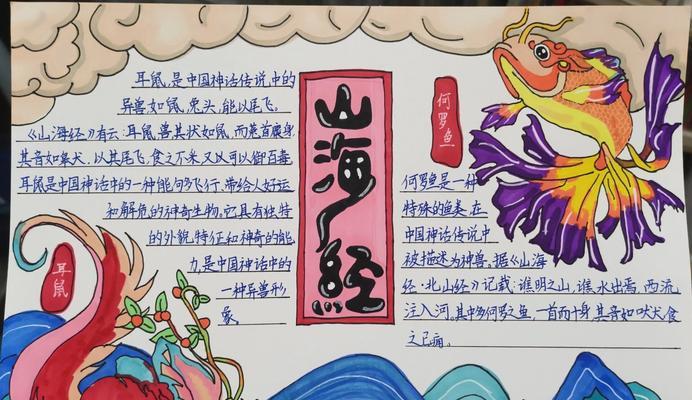 山海经
耳鼠,是中国神话传说中的
异兽,如鼠,兔头,能以尾飞。
《山海经》有云:耳鼠,兽其状如鼠,而菟首麋身
其音如犬,以其尾飞,食之不 又以可以御百毒
耳鼠是中国神话中的一种能够飞行,带给人好运
和解危的神奇生物。它具有独特
的外貌,特征和神奇的能
力,是中国神话中的
一种异兽形
象。
耳鼠
何罗鱼
何罗鱼是一种
特殊的鱼类,在
中国神话传说中
被描述为神兽,据《山海
经·北山经》记载:谯明之山,谯水出焉,西流
注入河。其中多何罗之鱼,一首而十身,其音如吠犬,食
之已痈。